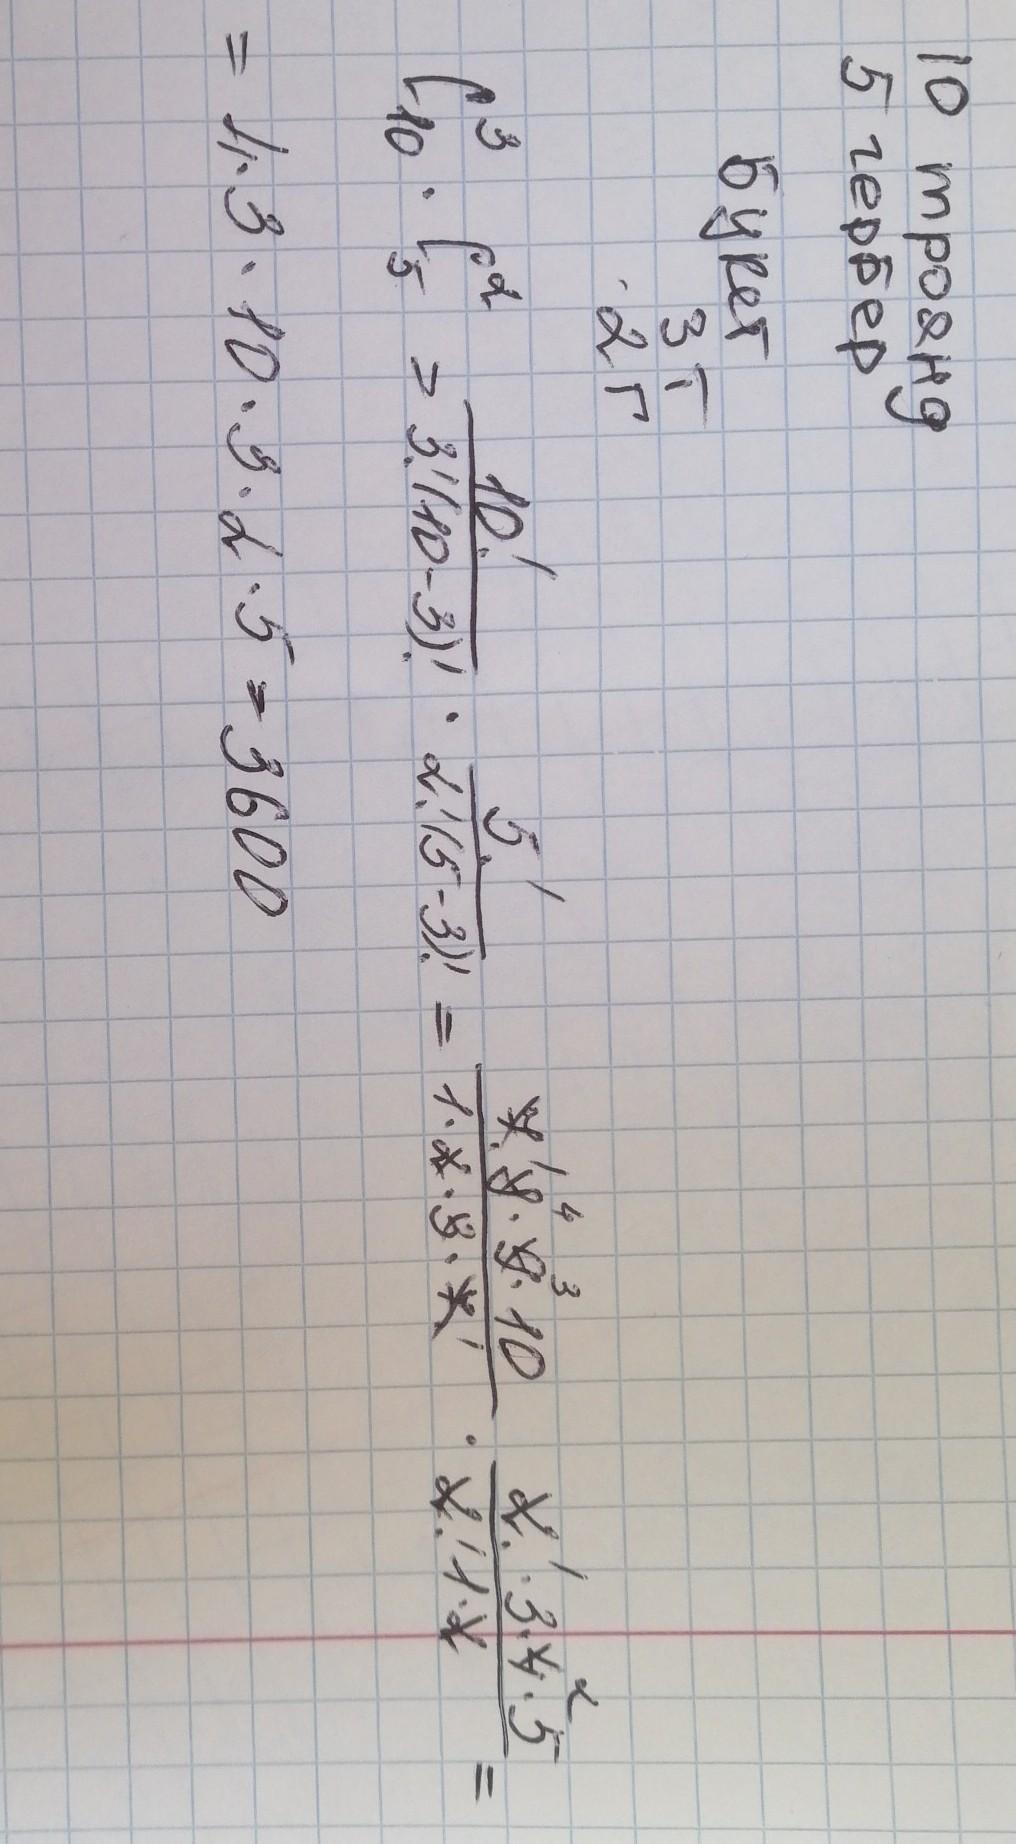 10 троянд
5 гербер
букет
3 т
2 г
C³₁₀ · C²₅ = 10!/3!(10-3)! · 5!/2!(5-3)! = 7! 8⁴ · 9³ · 10/1 · 2 · 3 · 7! · 2! · 3 · 4² · 5/2! 1 · 2 =
= 4 · 3 · 10 · 3 · 2 · 5 = 3600